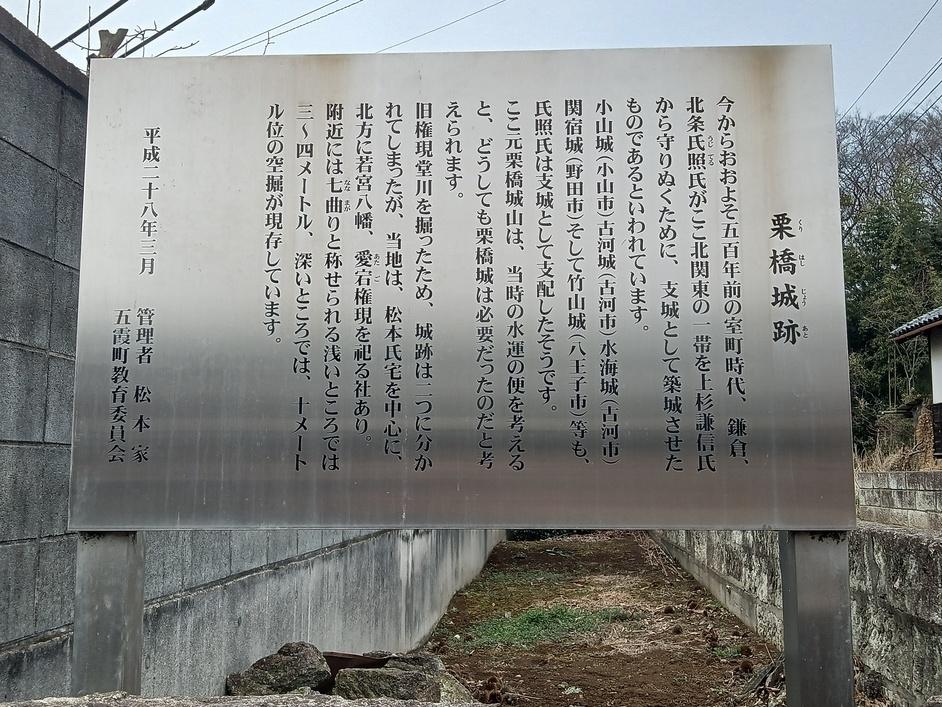 栗橋城跡
くり はし じょう あと
今からおおよそ五百年前の室町時代、鎌倉、
北条氏照氏がここ北関東の一帯を上杉謙信氏
うじ てる
から守りぬくために、支城として築城させた
ものであるといわれています。
小山城(小山市)古河城(古河市)水海城(古河市)
関宿城(野田市)そして竹山城(八王子市)等も、
氏照氏は支城として支配したそうです。
ここ元栗橋城山は、当時の水運の便を考える
と、どうしても栗橋城は必要だったのだと考
えられます。
旧権現堂川を掘ったため、城跡は二つに分か
れてしまったが、当地は、松本氏宅を中心に、
北方に若宮八幡、愛宕権現を祀る社あり。
あた ご
附近には七曲りと称せられる浅いところでは
なな まが
三〜四メートル、深いところでは、十メート
ル位の空掘が現存しています。
平成二十八年三月
管理者 松本家
五霞町教育委員会